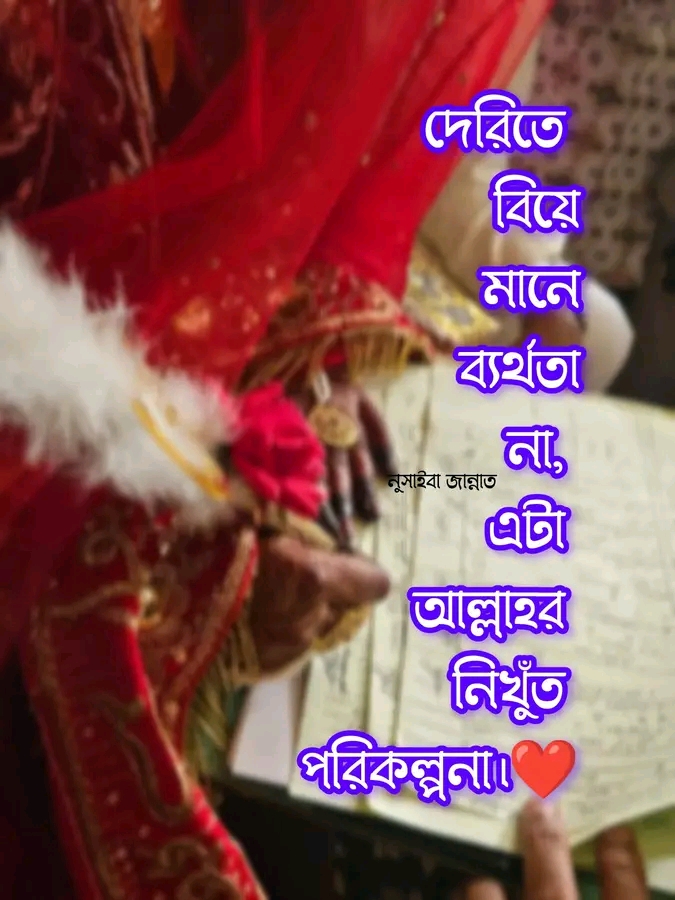 দেরিতে
বিয়ে
মানে
ব্যর্থতা
না,
নুসাইবা জান্নাত
এটা
আল্লাহর
নিখুঁত
পরিকল্পনা।❤️